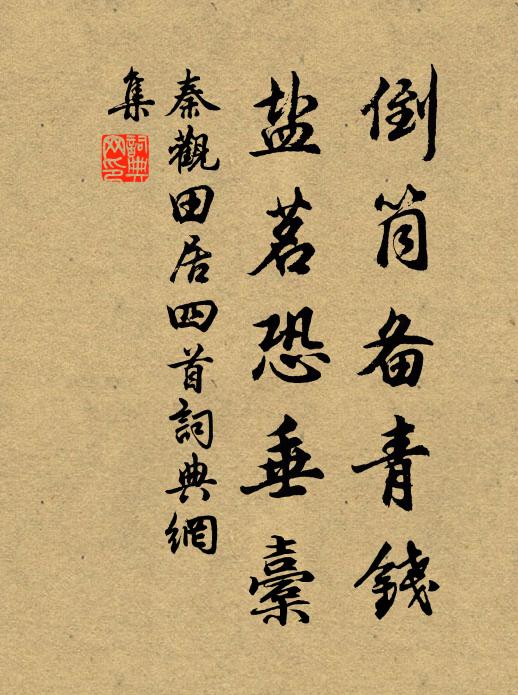 倒筒备青錢
盐茗恐垂橐
秦觀田居四首詞典網
集
詞典
网印